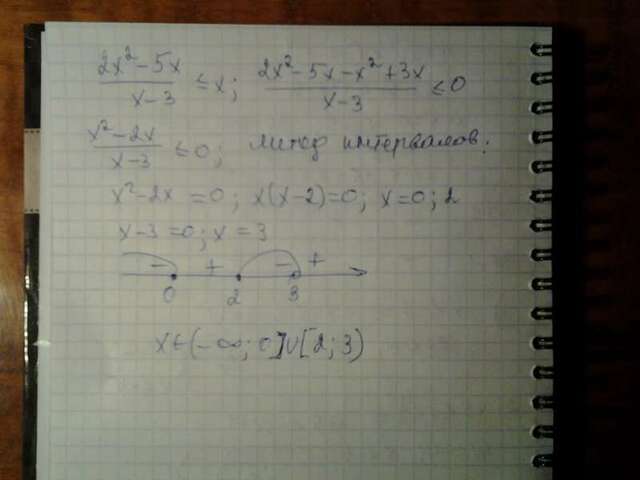 (2x² - 5x)/(x - 3) ≤ x; (2x² - 5x - x² + 3x)/(x - 3) ≤ 0
(x² - 2x)/(x - 3) ≤ 0; метод интервалов:
x² - 2x = 0; x(x - 2) = 0; x = 0; 2
x - 3 = 0; x = 3
- + - +
0 2 3
x ∈ (-∞; 0] ∪ [2; 3)